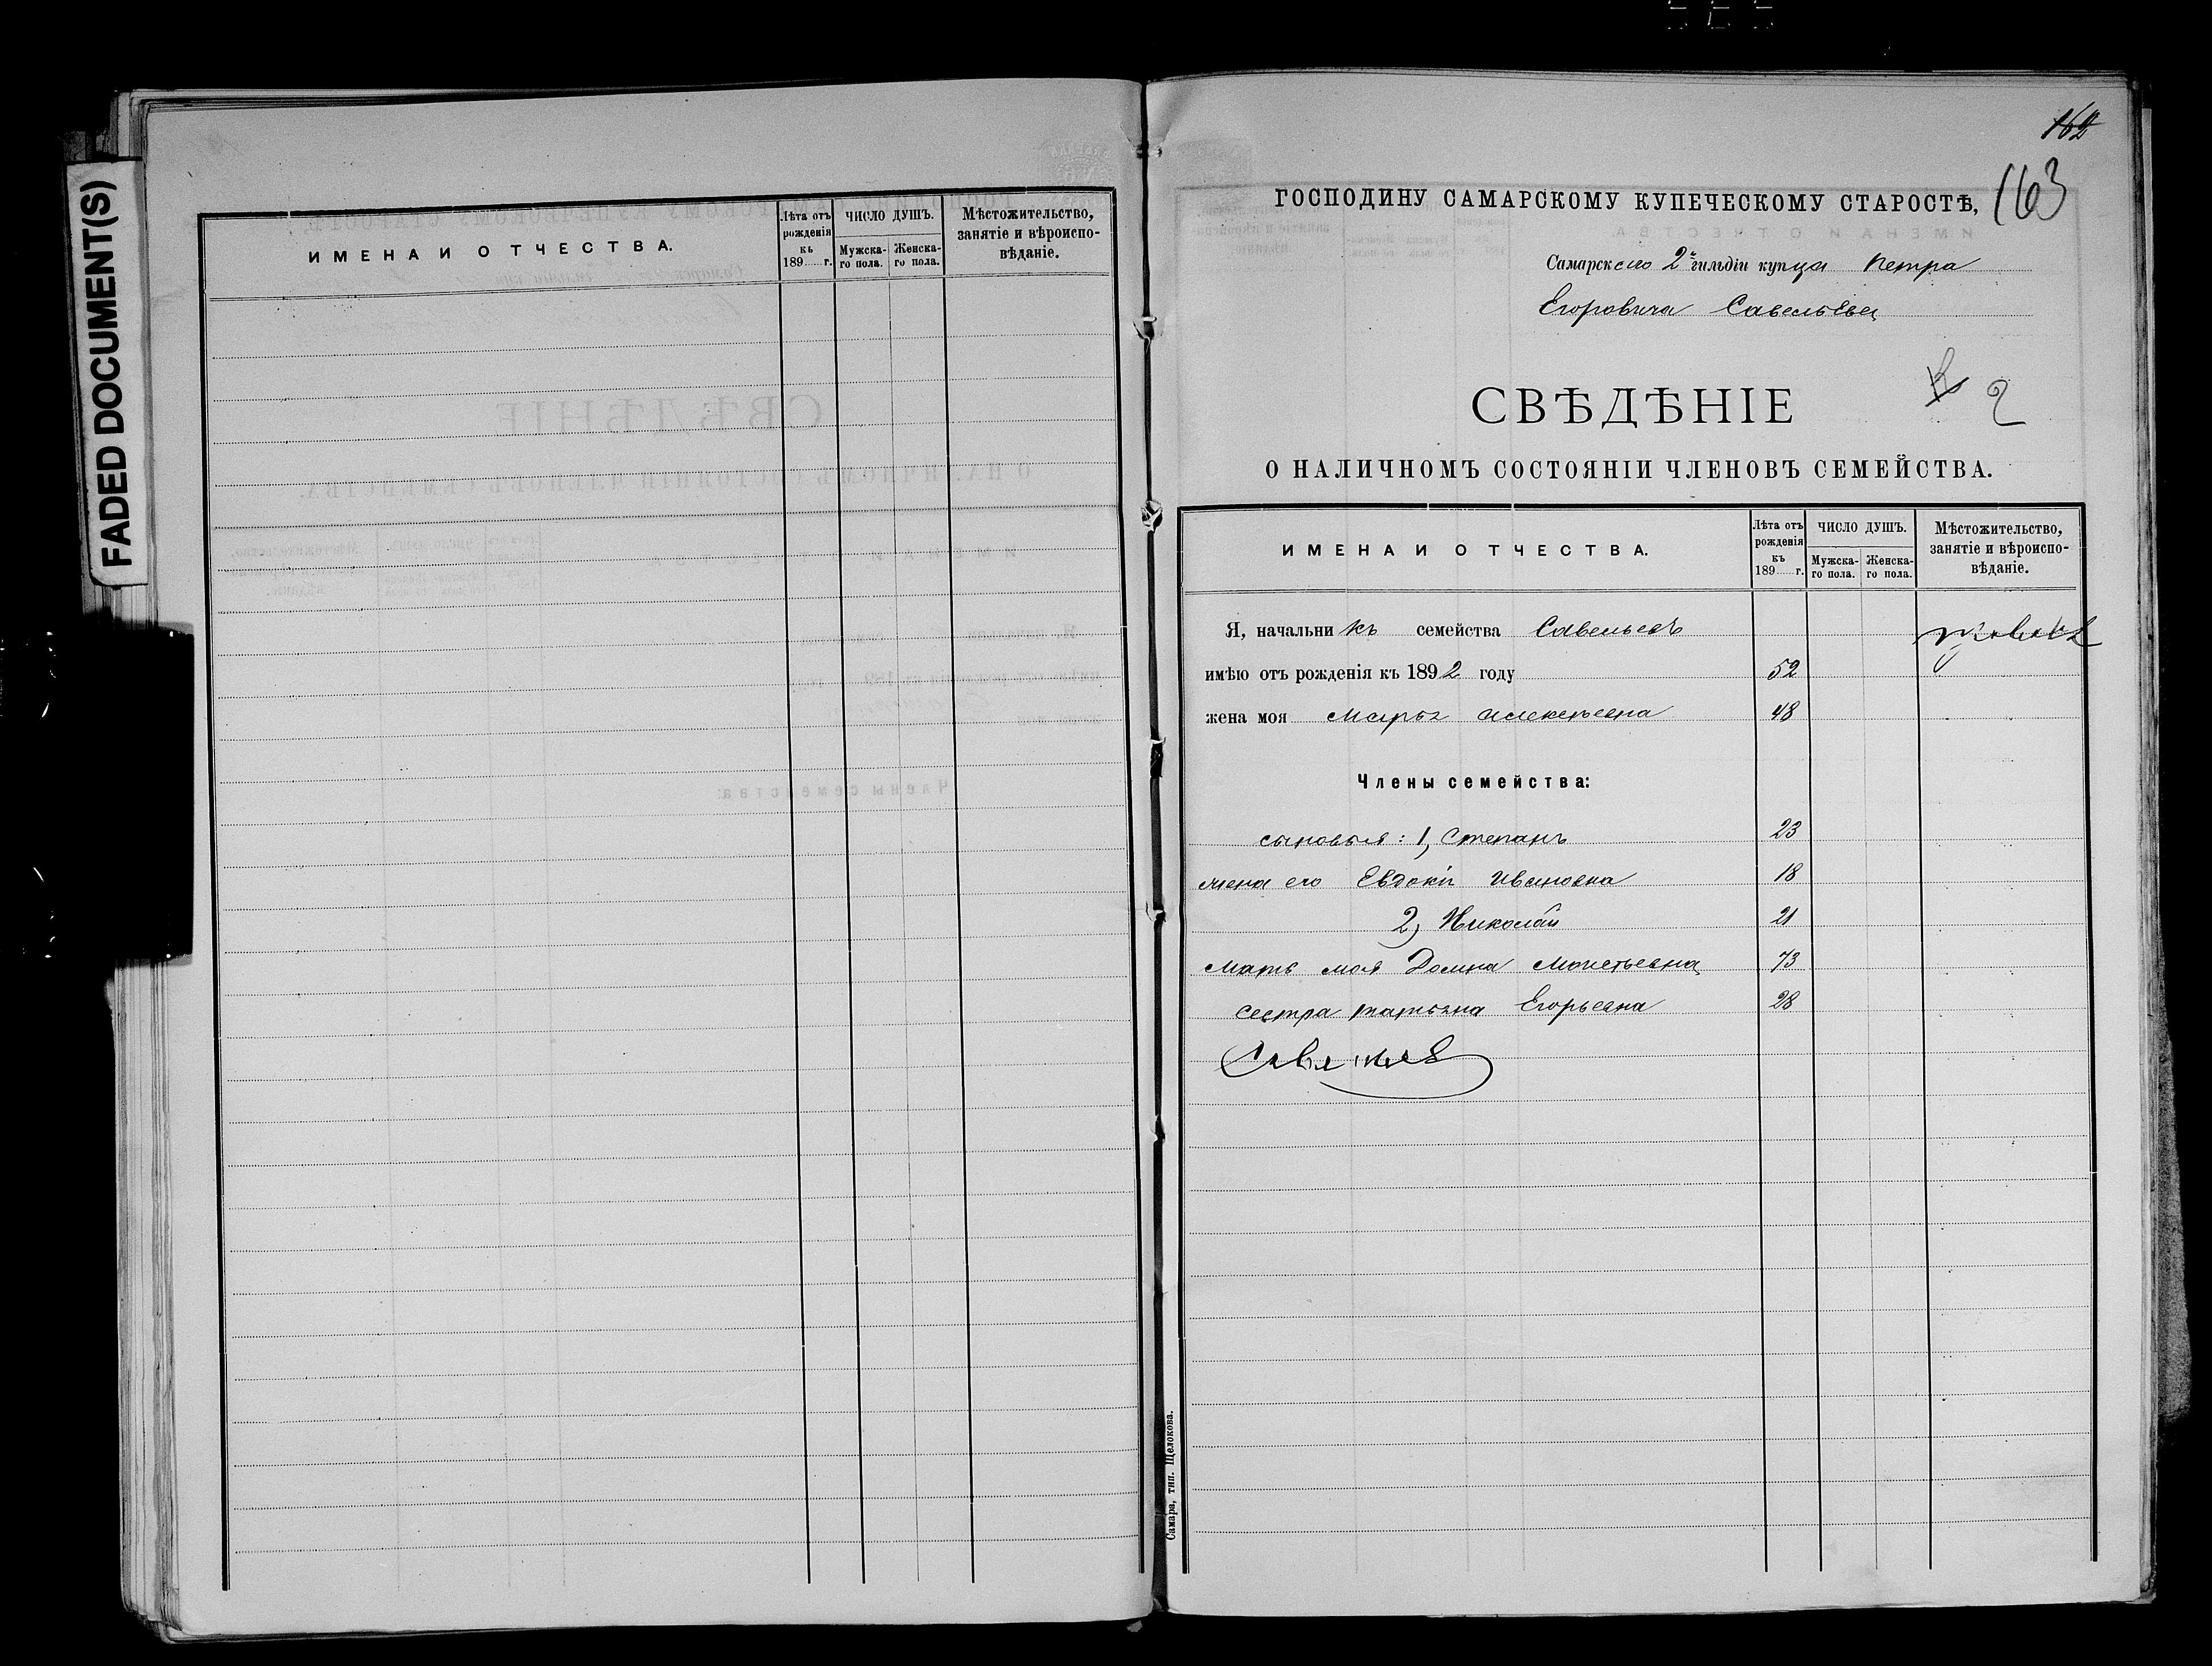 FADED DOCUMENT(S)
ИМЕНА И ОТЧЕСТВА.
Лѣта отъ рожденія къ 189 г.
ЧИСЛО ДУШЪ.
Мужска-го пола.
Женска-го пола.
Мѣстожительство, занятіе и вѣроиспо-вѣданіе.
162
163
ГОСПОДИНУ САМАРСКОМУ КУПЕЧЕСКОМУ СТАРОСТѢ,
Самарскаго 2й гильдіи купца Петра
Егоровича Савельева
2
СВѢДѢНІЕ
О НАЛИЧНОМЪ СОСТОЯНІИ ЧЛЕНОВЪ СЕМЕЙСТВА.
ИМЕНА И ОТЧЕСТВА.
Лѣта отъ рожденія къ 189 г.
ЧИСЛО ДУШЪ.
Мужска-го пола.
Женска-го пола.
Мѣстожительство, занятіе и вѣроиспо-вѣданіе.
Я, начальникъ семейства Савельевъ
имѣю отъ рожденія къ 1892 году 52
жена моя Марья Алексѣевна 48
Члены семейства:
сыновья: 1, Степанъ 23
жена его Евдокія Ивановна 18
2, Николай 21
Мать моя Домна 73
сестра Татьяна Егорьевна 28
Савельев
Самара, тип. Щелокова.